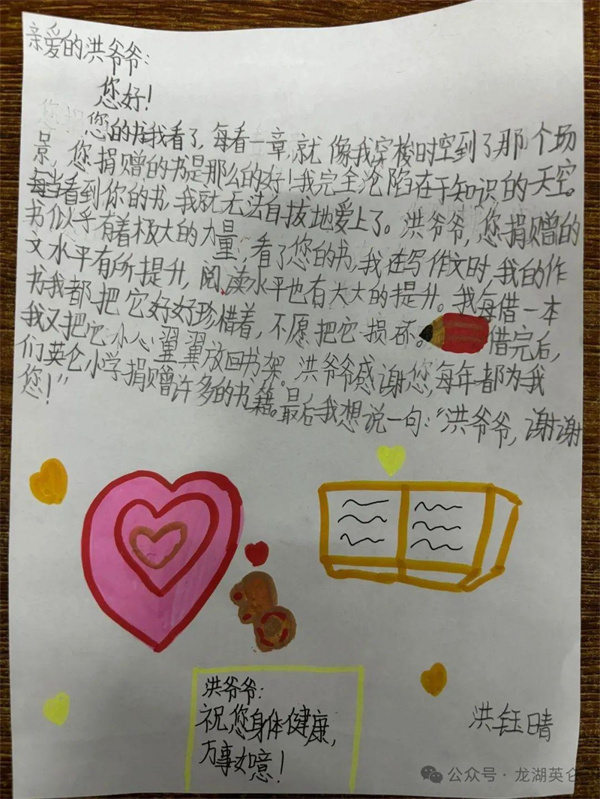 亲爱的洪爷爷：
您好！
您的书我看了，每看一章，就像我穿梭时空到了那个场
景，您捐赠的书是那么的好！我完全沦陷在于知识的天空。
每当看到你的书，我就无法自拔地爱上了。洪爷爷，您捐赠的
书似乎有着极大的力量，看了您的书，我在写作文时，我的作
文水平有所提升，阅读水平也有大大的提升。我每借一本
书我都把它好好珍惜着，不愿把它损坏。借完后，
我又把它小心翼翼放回书架。洪爷爷感谢您，每年都为我
们英仑小学捐赠许多的书籍。最后我想说一句：“洪爷爷，谢谢
您！”
洪爷爷：
祝您身体健康，
万事如意！
洪钰晴
公众号·龙湖英仑